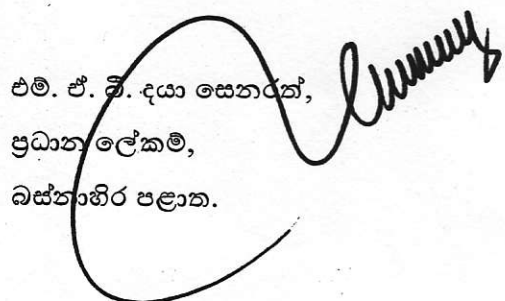 එම්. ඒ. බී. දයා සෙනරත්,
ප්‍රධාන ලේකම්,
බස්නාහිර පළාත.